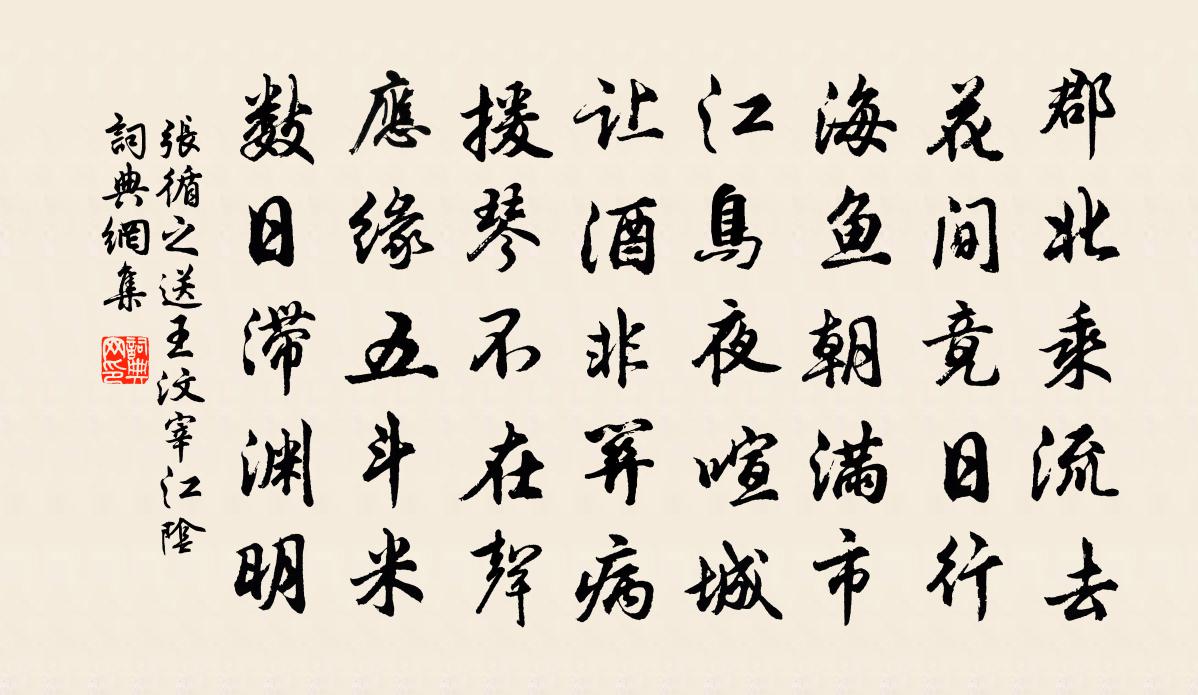 郡北乘流去
花间竟日行
海鱼朝满市
江鳥夜喧城
让酒非关病
援琴不在聲
應缘五斗米
数日滞渊明
張循之送王汶宰江陰
詞典網集
詞典网印